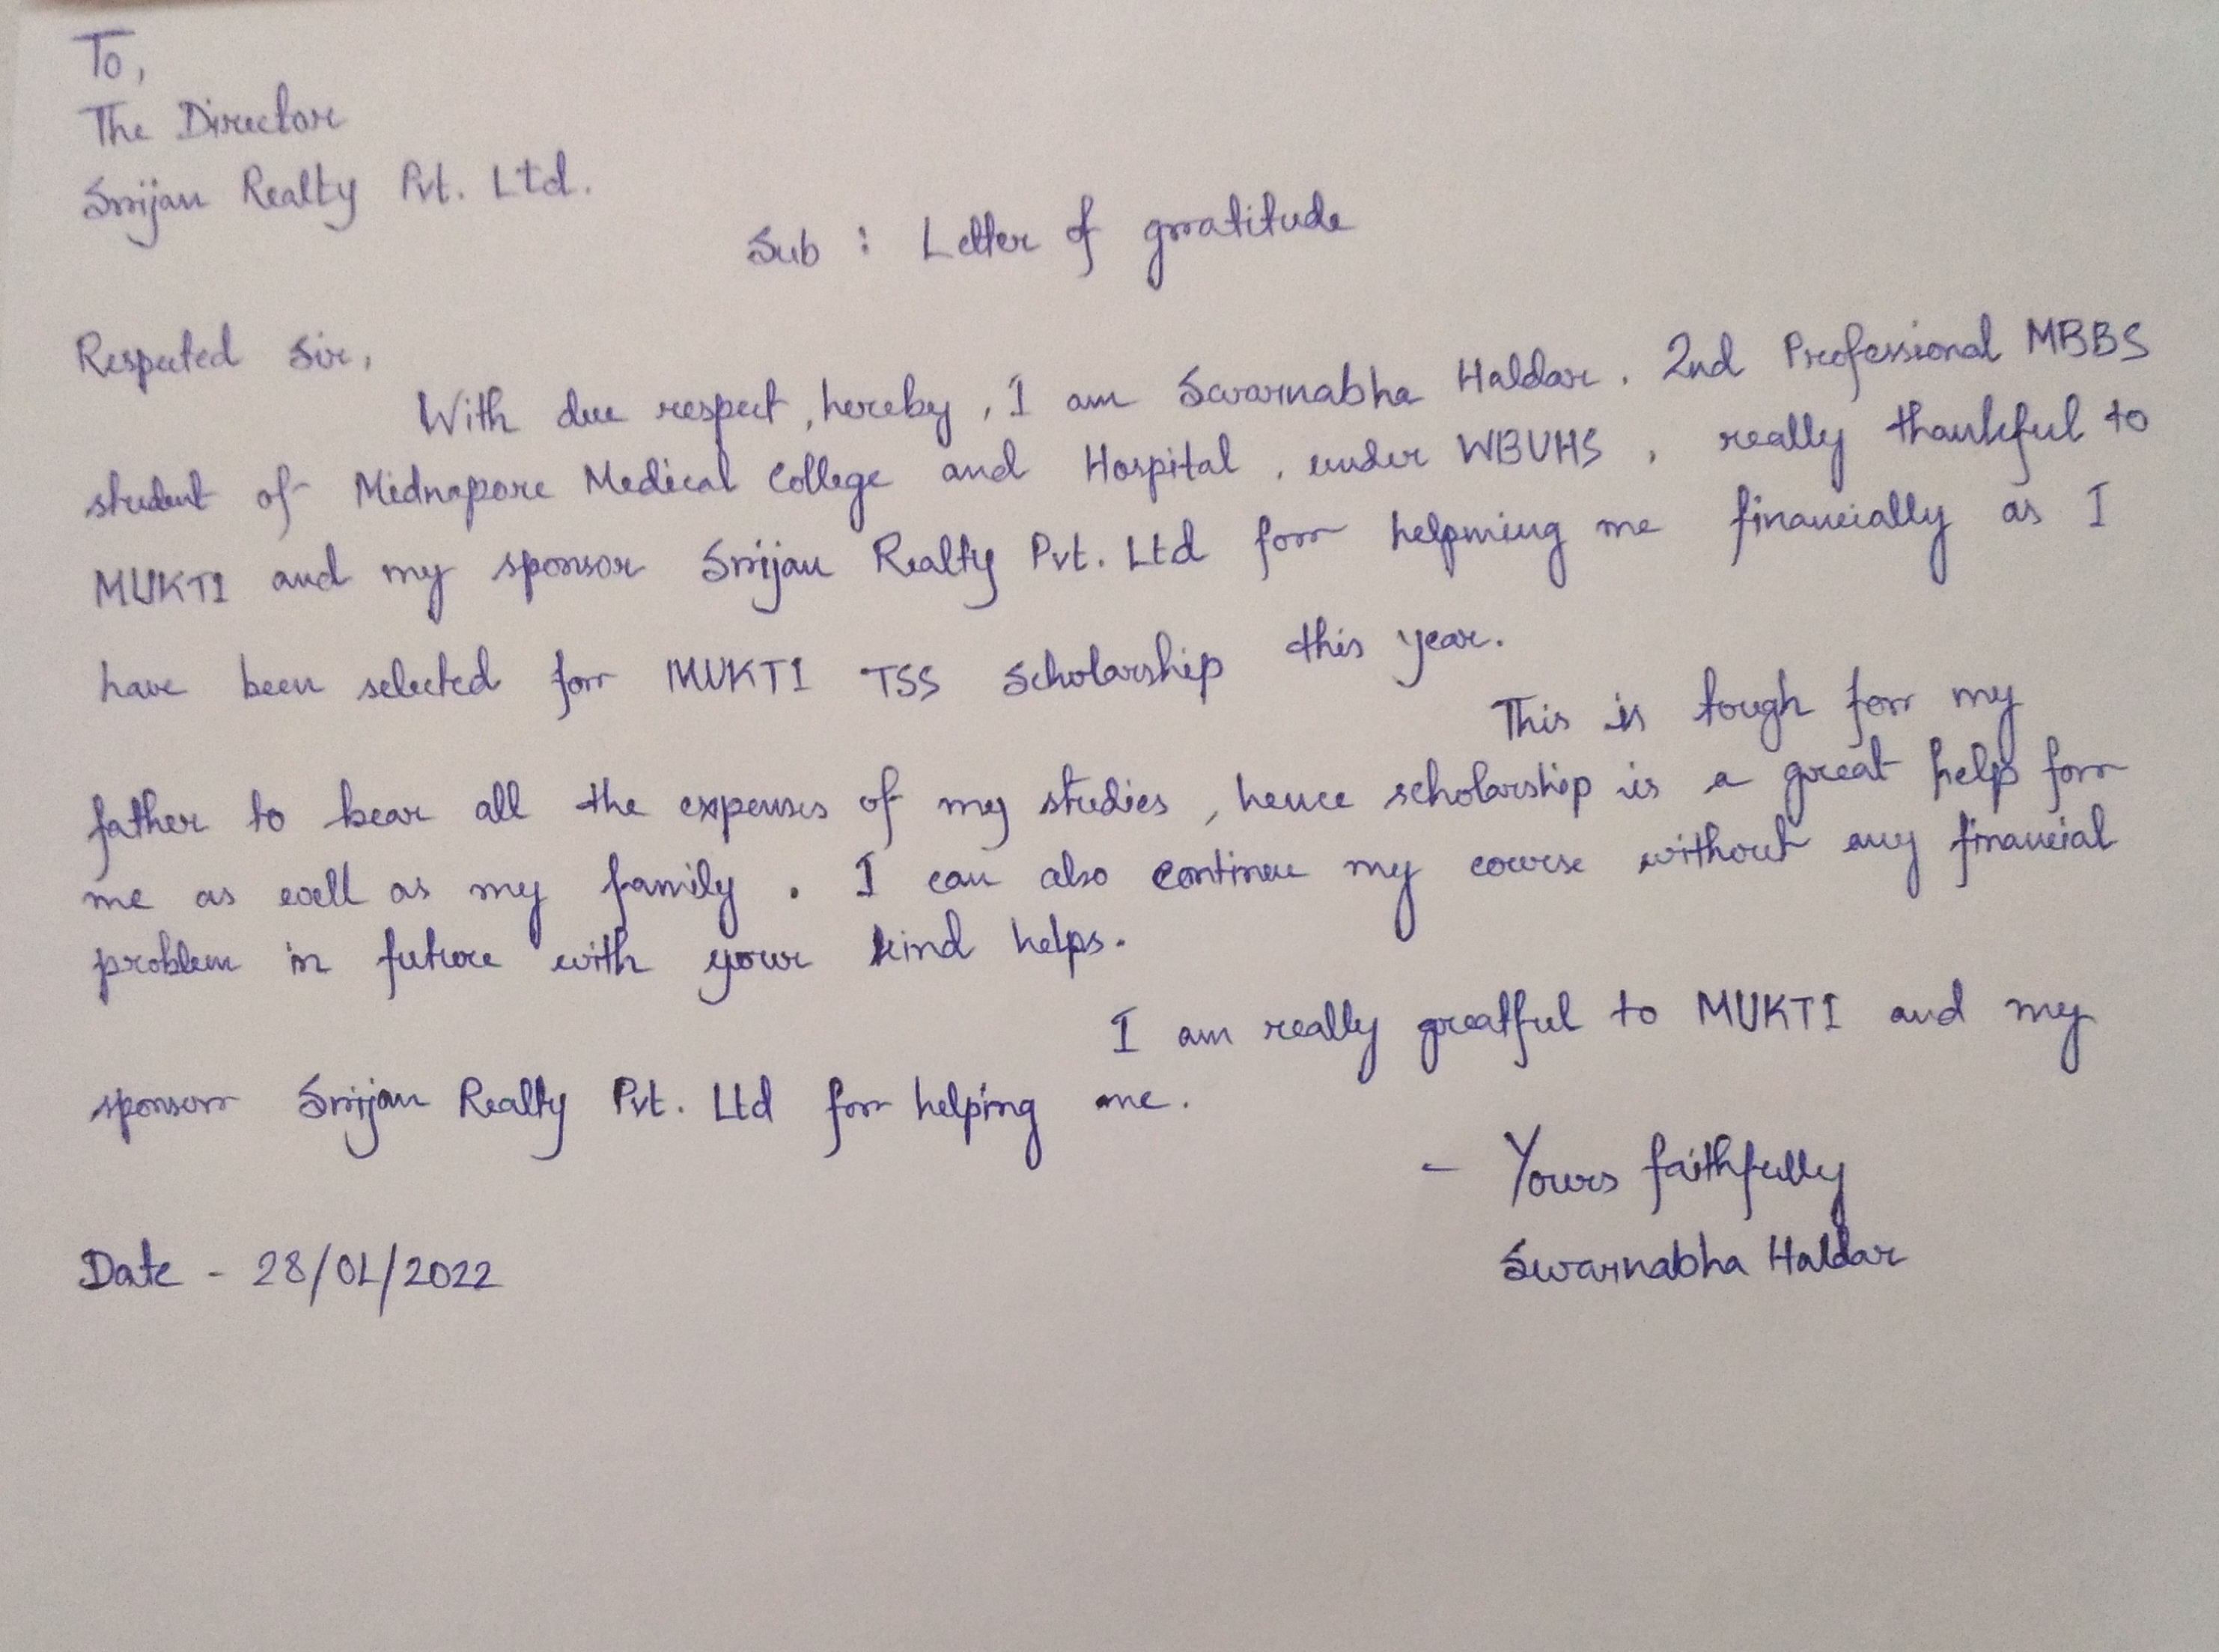 To,
The Director
Srijan Realty Pvt. Ltd.
Sub : Letter of gratitude
Respected Sir,
With due respect, hereby, I am Swarnabha Haldar, 2nd Professional MBBS
student of Midnapore Medical College and Hospital, under WBUHS, really thankful to
MUKTI and my sponsor Srijan Realty Pvt. Ltd for helpming me financially as I
have been selected for MUKTI TSS Scholarship this year.
This is tough for my
father to bear all the expenses of my studies, hence scholarship is a great help for
me as well as my family. I can also continue my course without any financial
problem in future with your kind helps.
I am really greatful to MUKTI and my
sponsor Srijan Realty Pvt. Ltd for helping me.
- Yours faithfully
Swarnabha Haldar
Date - 28/01/2022